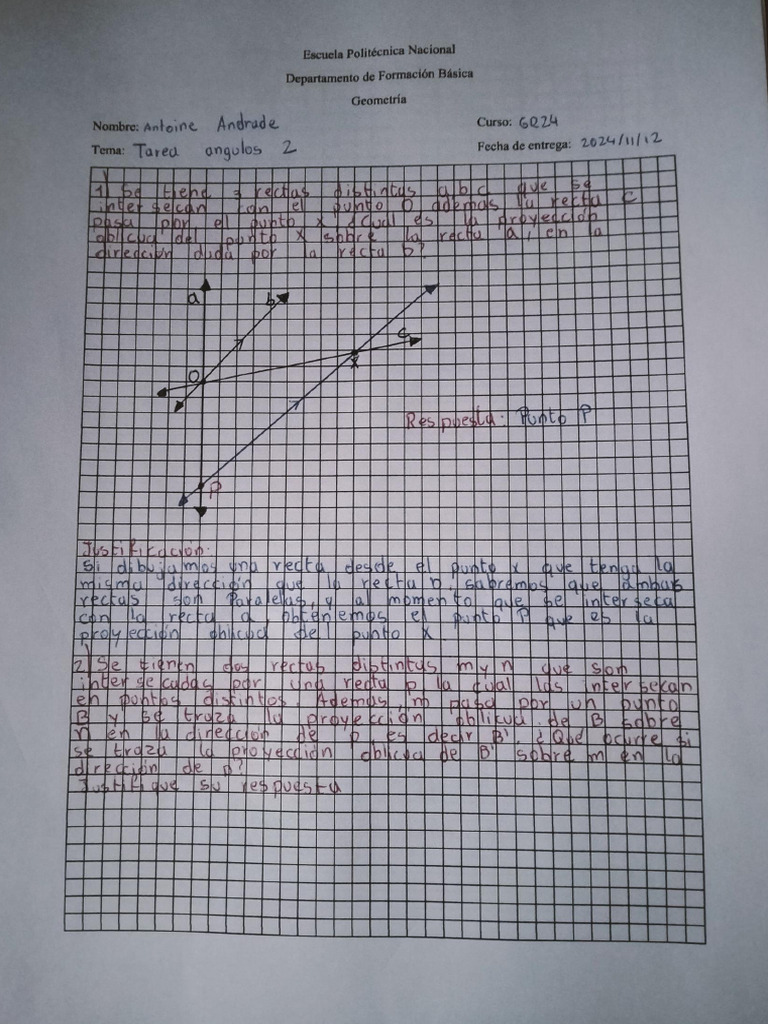 Escuela Politécnica Nacional
Departamento de Formación Básica
Geometría
Nombre: Antoine Andrade Curso: GR24
Tema: Tarea angulos 2 Fecha de entrega: 2024/11/12
1) Se tiene 3 rectas distintas a,b,c que se
intersecan con el punto O además la recta c
pasa por el punto x ¿Cual es la proyección
oblicua del punto x sobre la recta a, en la
dirección dada por la recta b?
a
b
c
O
x
Respuesta: Punto P
P
Justificación:
Si dibujamos una recta desde el punto x que tenga la
misma dirección que la recta b, sabremos que ambas
rectas son Paralelas, y al momento que se interseca
con la recta a obtenemos el punto P que es la
proyección oblicua del punto x
2) Se tienen dos rectas distintas m y n que son
intersecadas por una recta p la cual las intersekan
en puntos distintos. Ademas, m pasa por un punto
B y se traza la proyección oblicua de B sobre
n en la dirección de p, es decir B'. ¿Que ocurre si
se traza la proyección oblicua de B' sobre m en la
dirección de p?
Justifique su respuesta